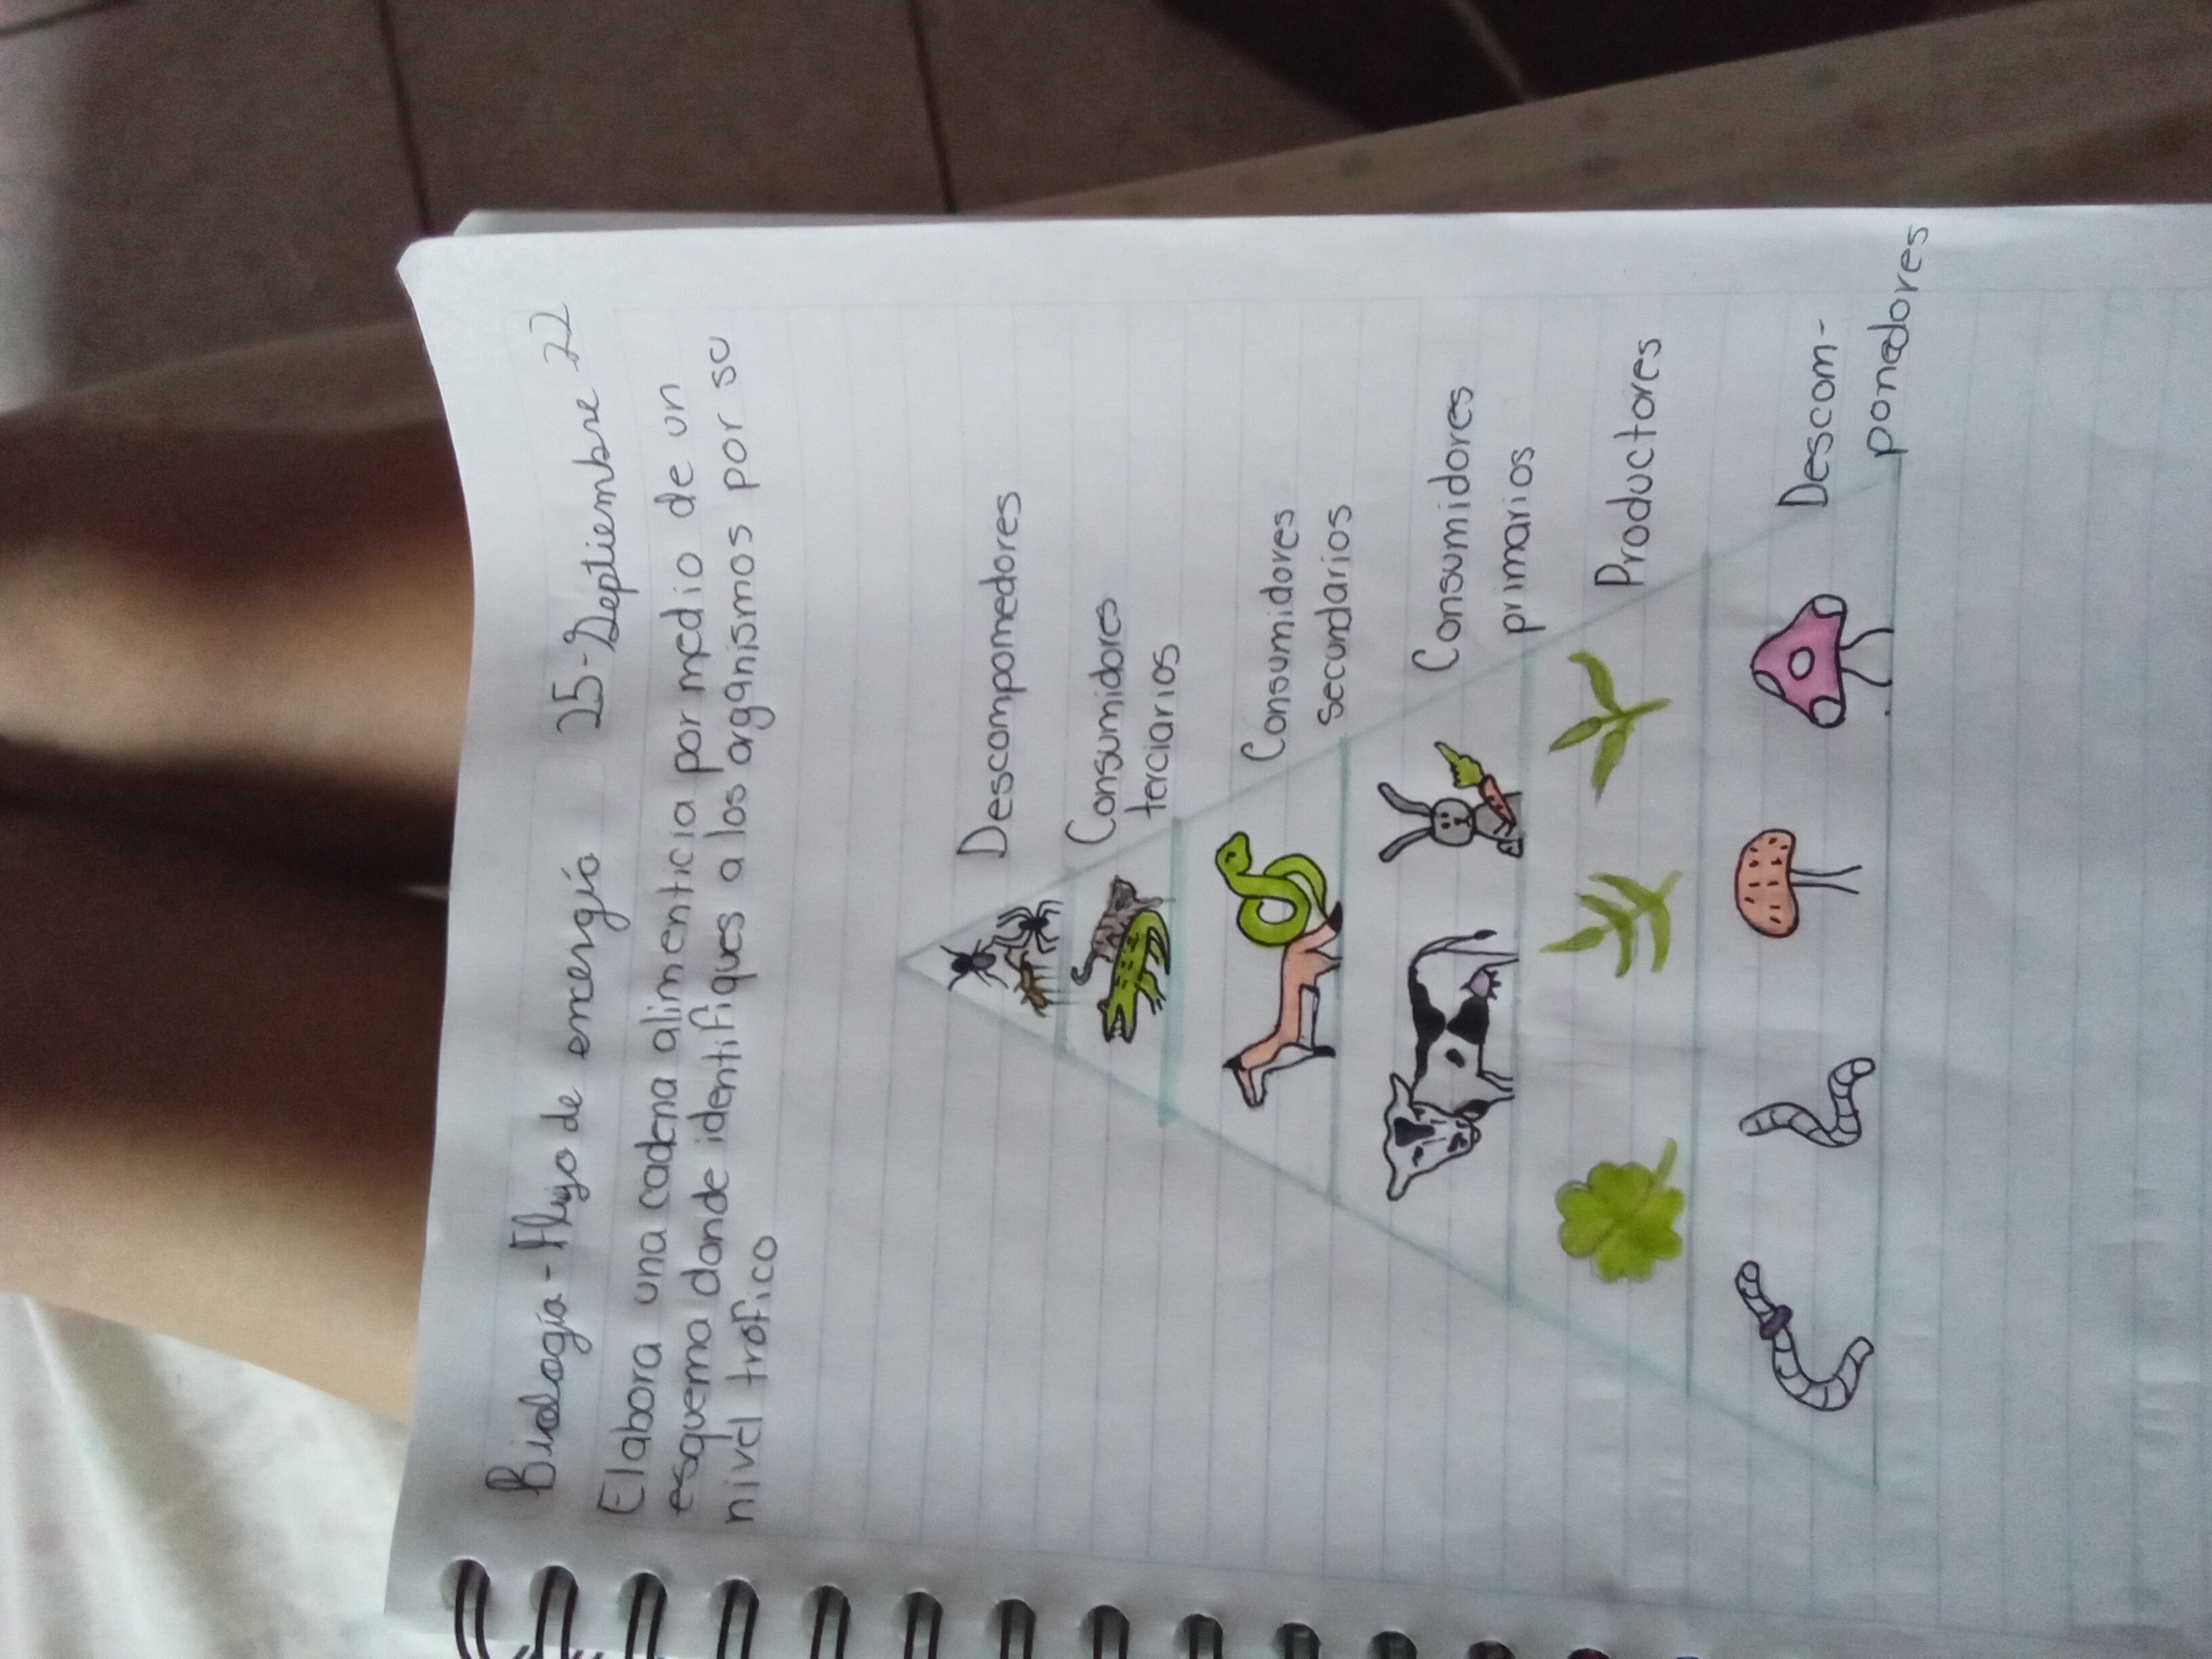 Biología - Flujo de energía 25-Septiembre-22
Elabora una cadena alimenticia por medio de un
esquema donde identifiques a los organismos por su
nivel trofico
Descomponedores
Consumidores
terciarios
Consumidores
secundarios
Consumidores
primarios
Productores
Descom-
ponedores